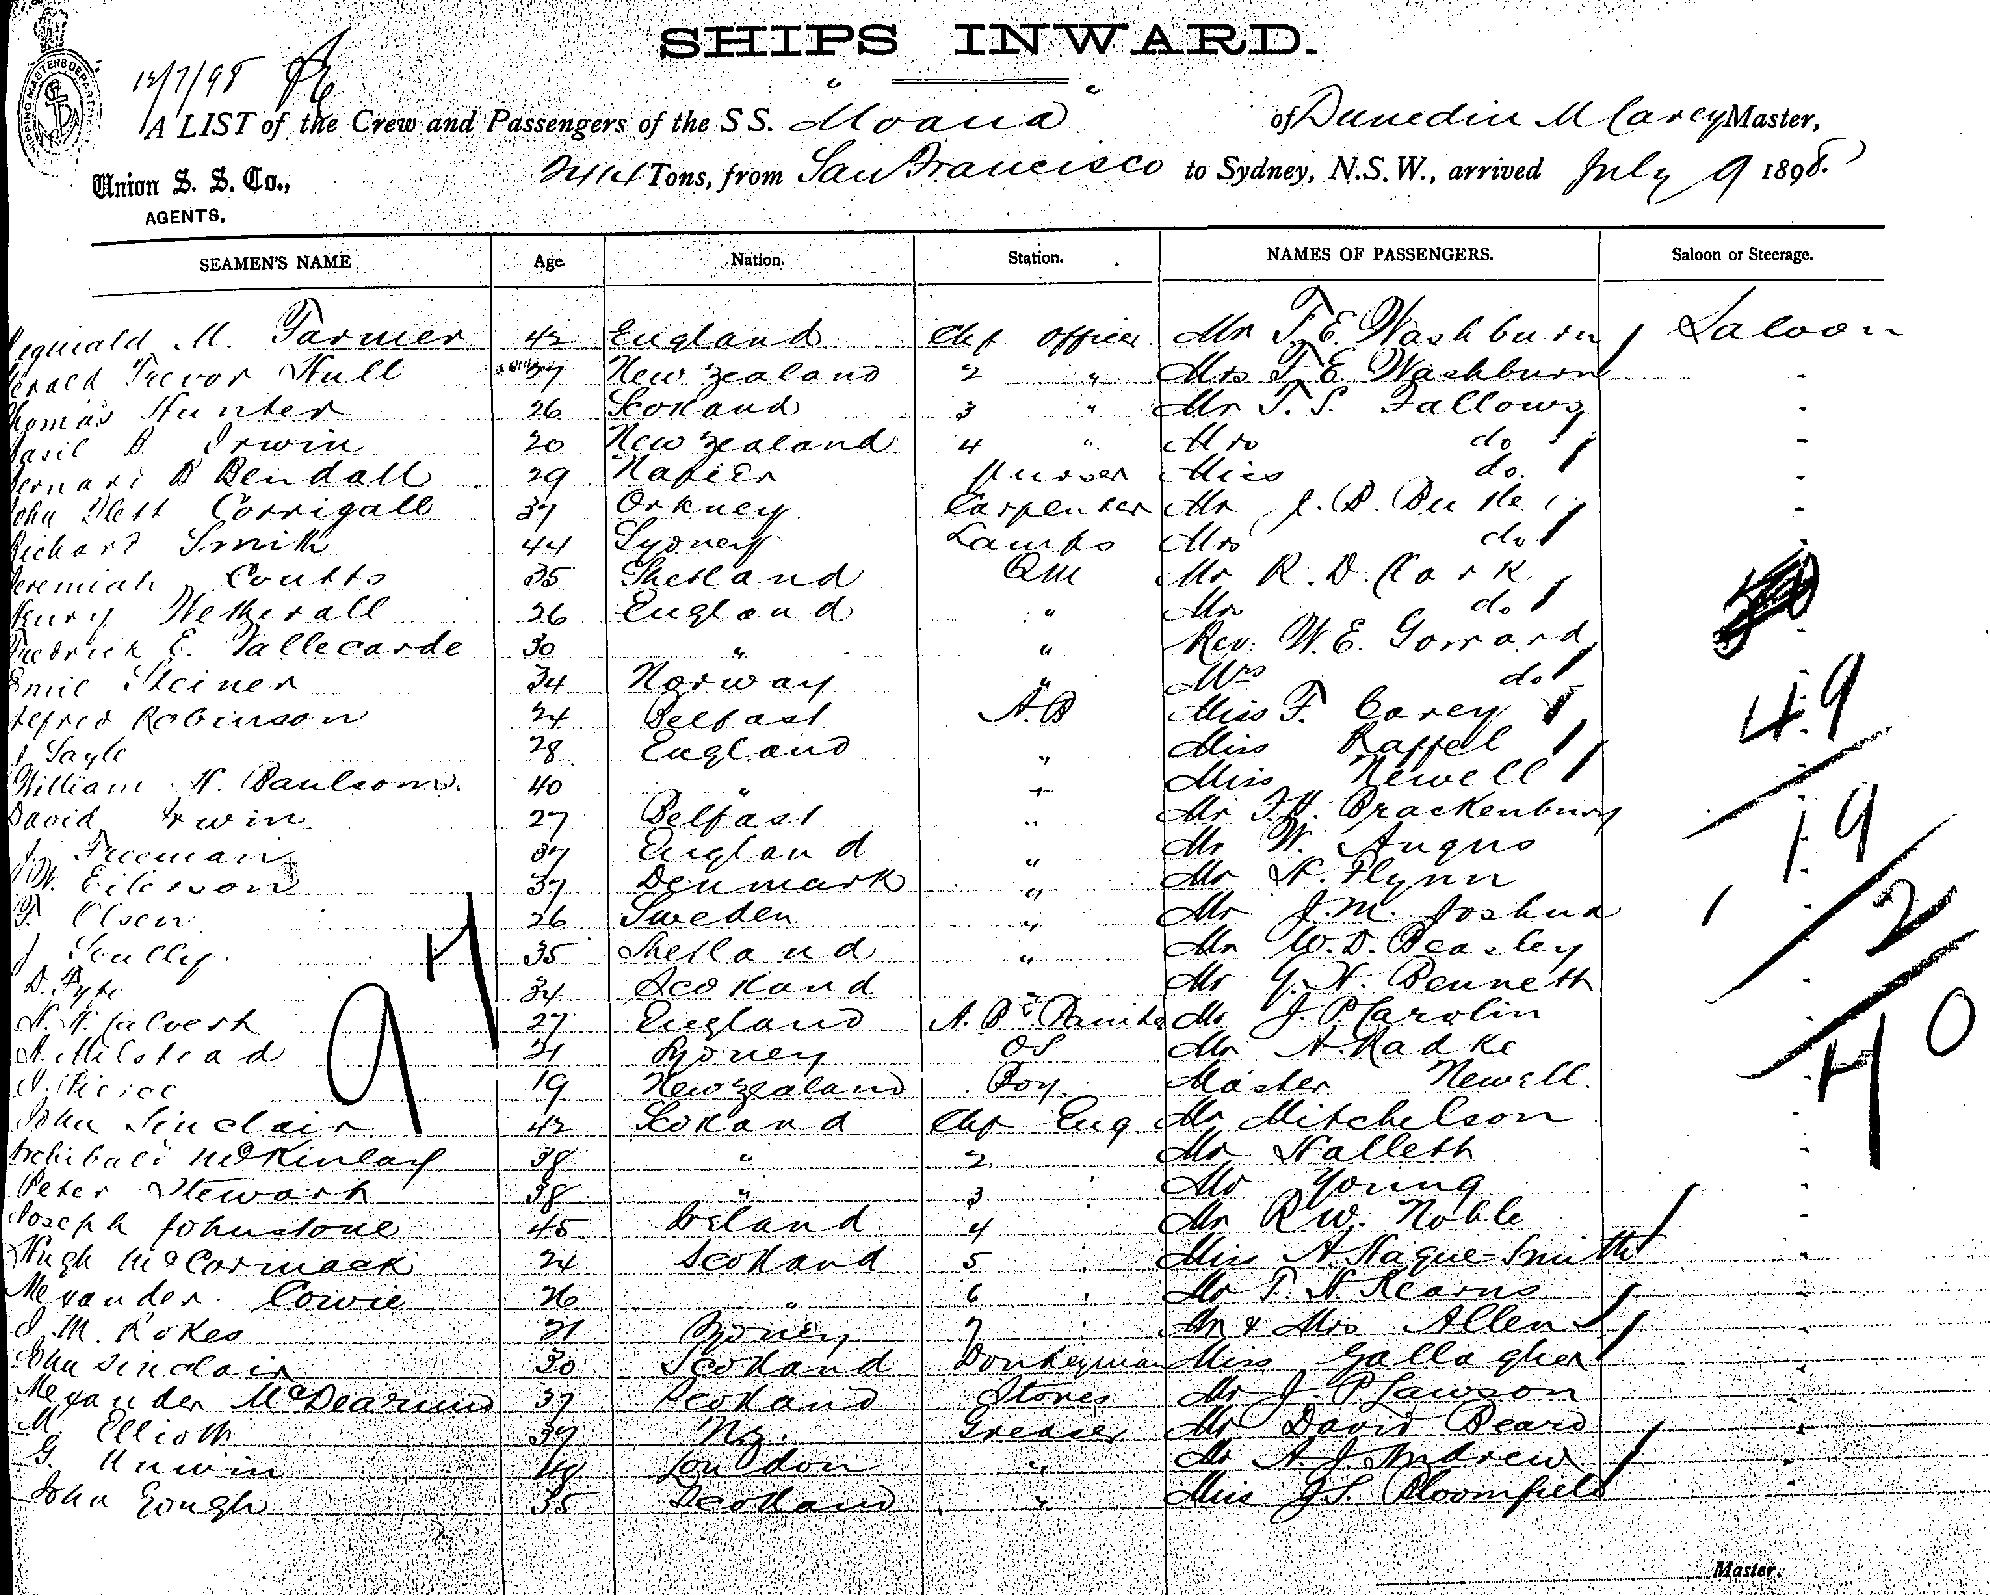 SHIPS INWARD.
12/7/98
A LIST of the Crew and Passengers of the SS. "Moana" of Dunedin M Carey Master,
Union S. S. Co., Tons, from San Francisco to Sydney, N.S.W., arrived July 9 1898.
AGENTS.
SEAMEN'S NAME Age. Nation. Station. NAMES OF PASSENGERS. Saloon or Steerage.
Reginald M. Farmer 42 England Chf Officer Mr T. E. Washburn Saloon
Gerald Trevor Hull 27 New Zealand 2 " Mrs T E Washburn "
Thomas Hunter 26 Scotland 3 " Mr T. S. Fallows "
Basil B Irwin 20 New Zealand 4 " Mrs do "
Bernard B Bendall 29 Napier Purser Miss do. "
John Corrigall 37 Orkney Carpenter Mr J. B. "
Richard Smith 44 Sydney Lamps Mrs do
Jeremiah Coutts 35 Shetland QM Mr R. D. Clark
Henry Wetherall 26 England " Mrs do
Fredrick E. Vallecarde 30 " " Rev. W. E. Gorrard
Emil Steiner 34 Norway " Mrs do
Alfred Robinson 24 Belfast A.B Miss F. Carey 49
J Sayle 28 England " Miss Raffel
William H. Paulsom. 40 " " Miss Newell
David Irwin 27 Belfast " Mr F. H. Brackenbury 19
J Freeman 37 England " Mr W. Angus
W. Eilerson 37 Denmark " Mr H. Flynn
T Olsen 26 Sweden " Mr J. M. Joshua 2
J Scully. 35 Shetland " Mr W. D. Beasley
D. Fyfe 34 Scotland Mr G. H. Bennett
H. H. Calvert 27 England A. B. & Mr J. P Carolin 40
A. Milstead 21 Sydney OS Mr A. Radke
J. Pierce 19 New Zealand Boy Master Newell.
94
John Sinclair 42 Scotland Chf Eng Mr Mitchelson
Archibald McKinlay 38 " 2 Mr Hallett
Peter Stewart 38 " 3 Mr Young
Joseph Johnstone 45 Ireland 4 Mr R. W. Noble
Hugh McCormack 24 Scotland 5 Miss A. Hague-Smith
Alexander Cowie 26 " 6 Mr T. H. Kearns
J. M. Rokes 21 Sydney 7 Mr & Mrs Allen
John Sinclair 30 Scotland Donkeyman Miss Gallagher
Alexander McDearmid 37 Scotland Stores Mr J. P Lawson
M Elliott 37 Nz. Greaser Mr David Beard
G. Unwin London " Mr A. J. Andrew
John Gough 35 Scotland " Miss J. S. Bloomfield
Master.